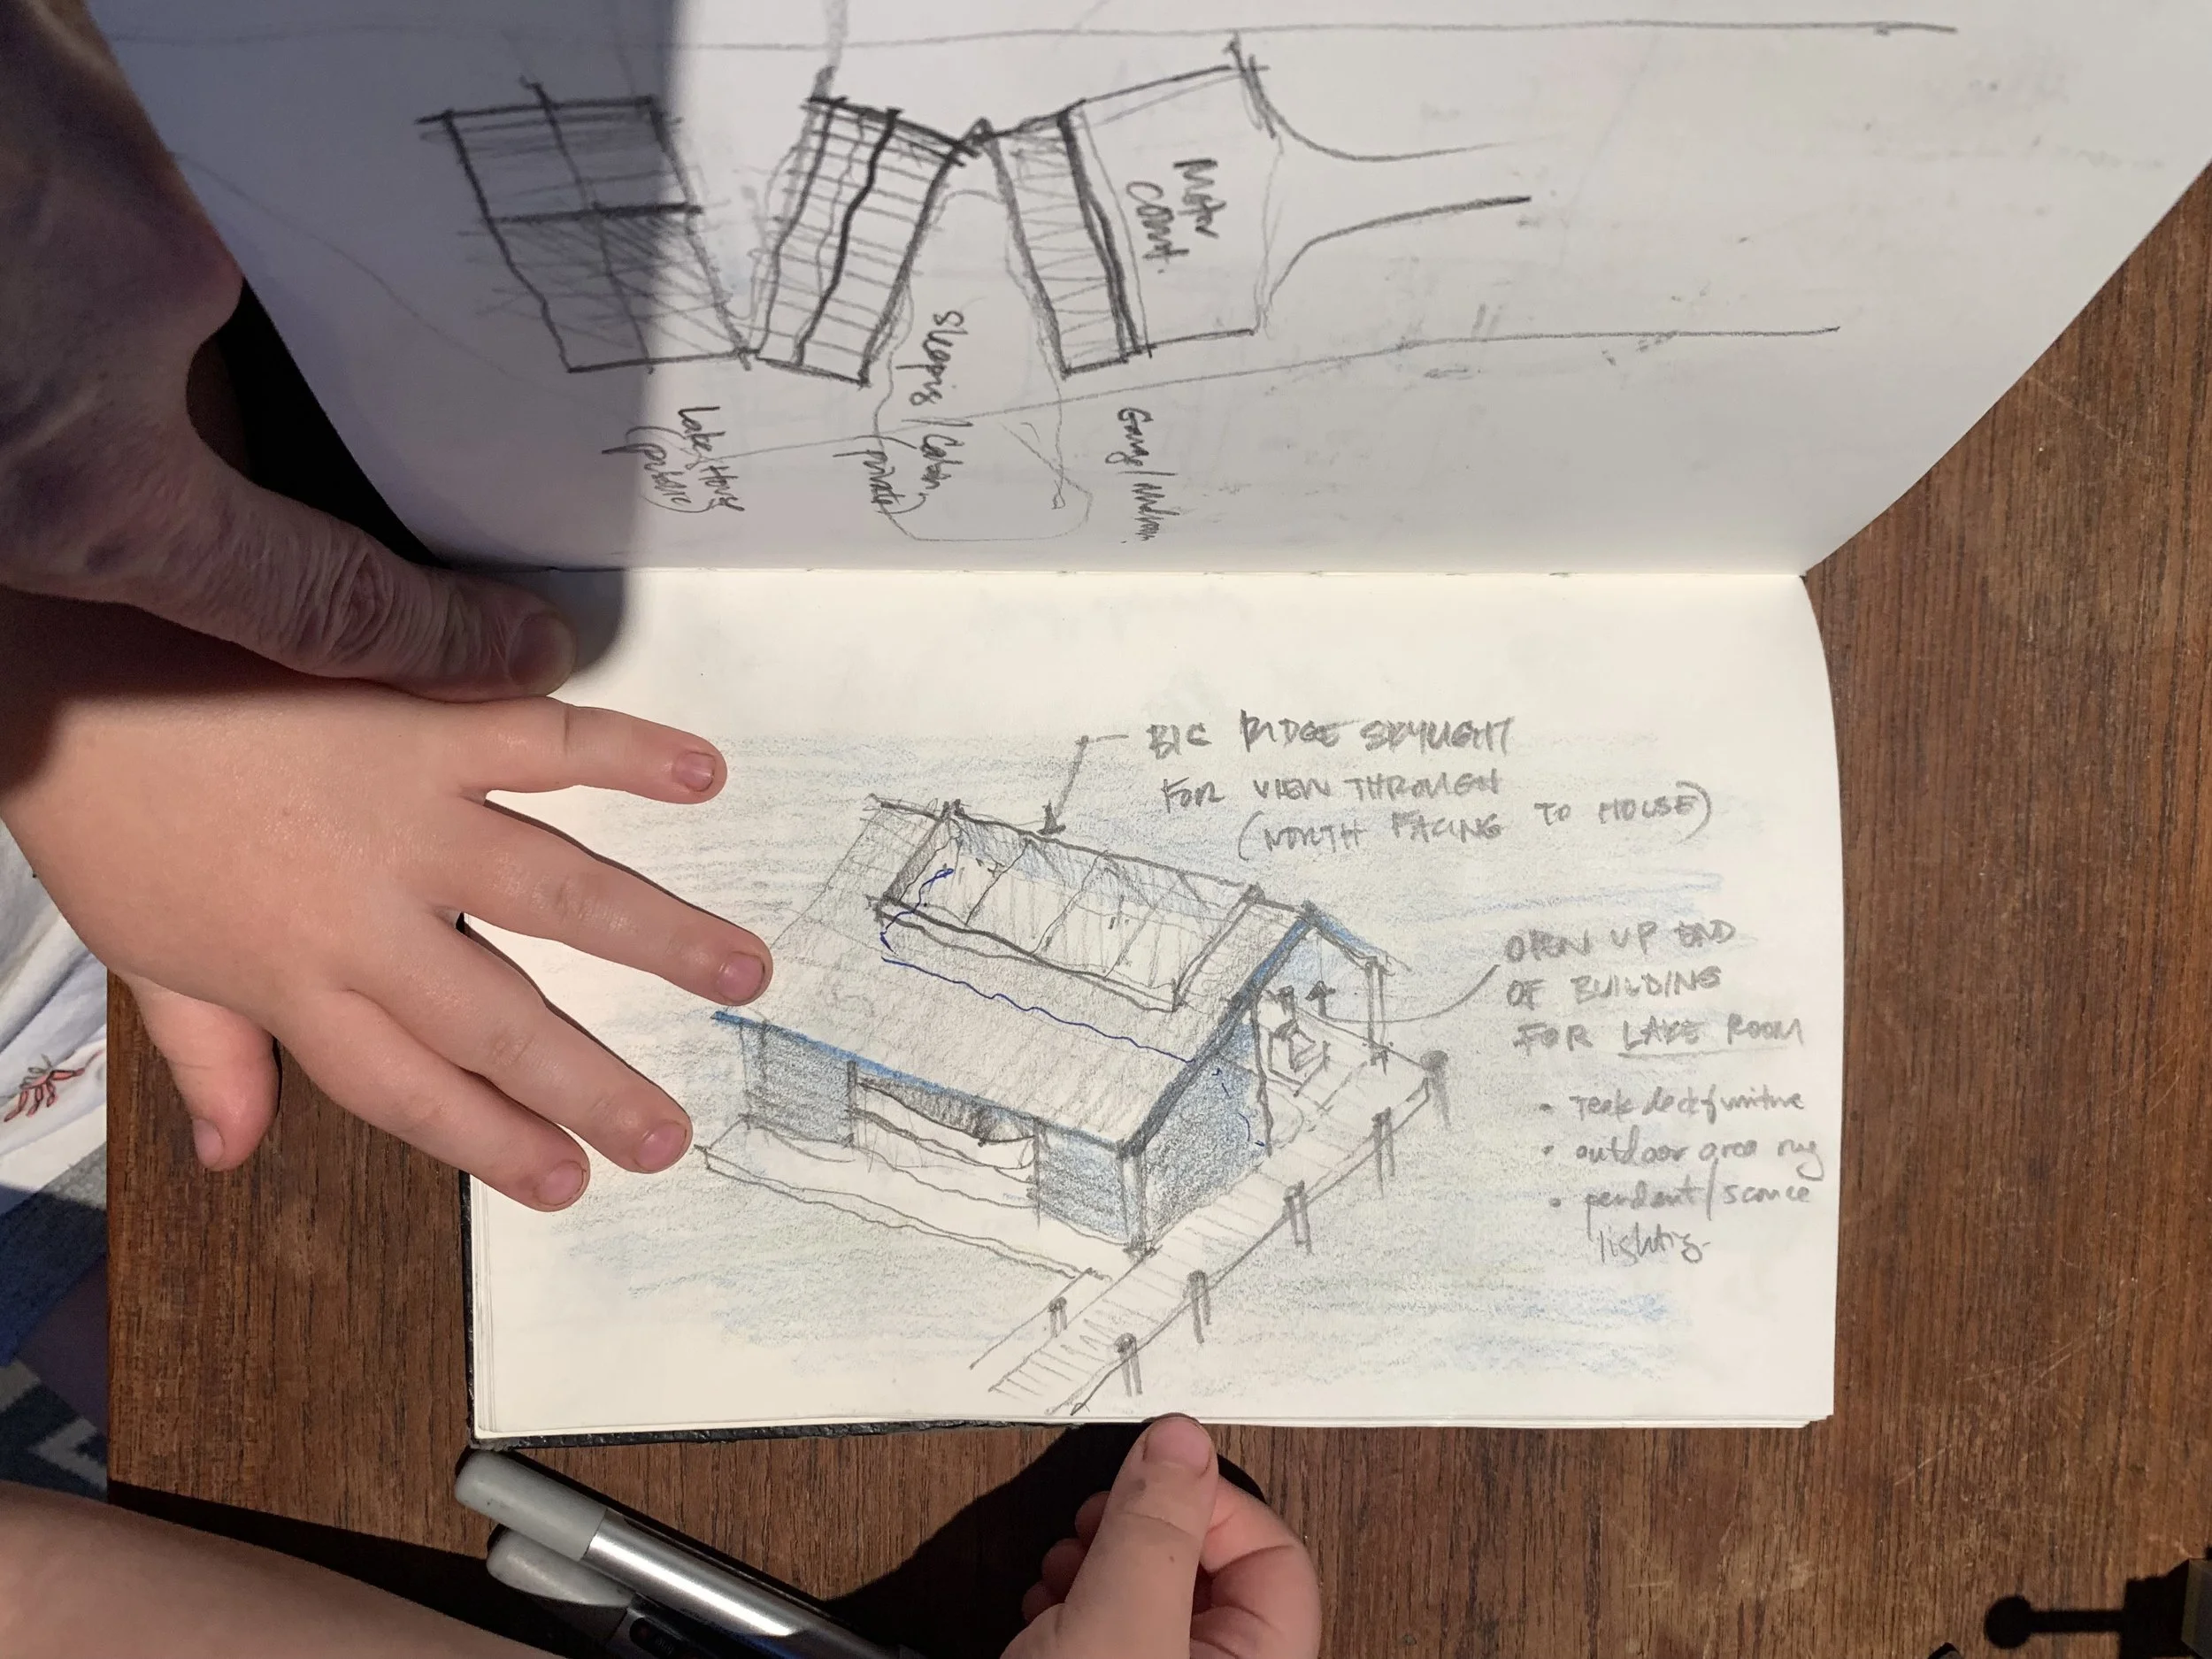 Motor
Court.
Garage/mudroom
Sleeping/Cabin
(private)
Lake House
(public)
BIG RIDGE SKYLIGHT
FOR VIEW THROUGH
(NORTH FACING TO HOUSE)
OPEN UP END
OF BUILDING
FOR LAKE ROOM
• Teak deck furniture
• outdoor area rug
• pendant/sconce
lighting